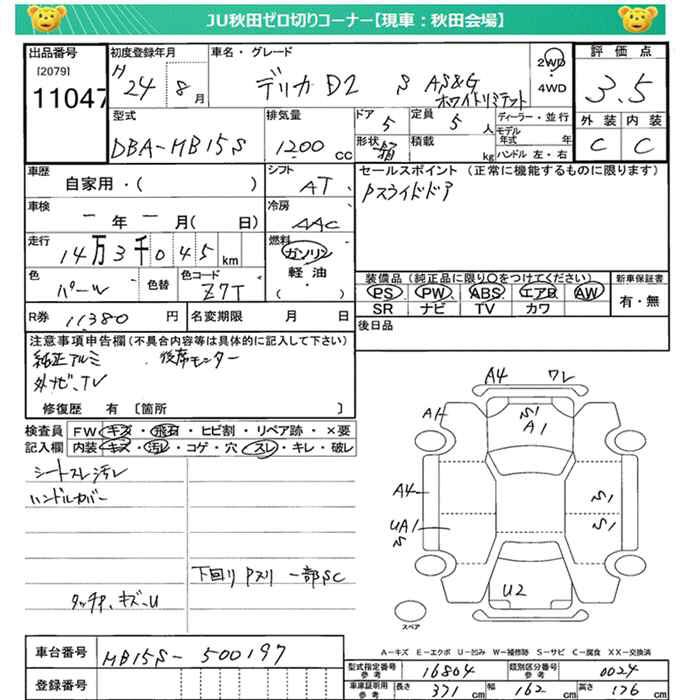 JU秋田ゼロ切りコーナー【現車：秋田会場】
出品番号
[2079]
11047
初度登録年月
H 24 8月
車名・グレード
デリカD2 S AS&G
ホワイトリミテット
2WD
4WD
評価点
3.5
外装 内装
C C
型式
DBA-MB15S
排気量
1200 cc
ドア
5
定員
5 人
形状
箱
積載
kg
ディーラー・並行
モデル年式 年
ハンドル 左・右
車歴
自家用・( )
シフト
AT
車検
一年一月( 日)
冷房
AAC
走行
14万3千045km
燃料
ガソリン
軽油
( )
色
パール
色替
色コード
Z7T
R券
11380円
名変期限 月 日
セールスポイント (正常に機能するものに限ります)
Pスライドドア
装備品(純正品に限り○をつけてください)
PS PW ABS エアB AW
SR ナビ TV カワ
新車保証書
有・無
後日品
注意事項申告欄(不具合内容等は具体的に記入して下さい)
純正アルミ 後席モニター
外ナビ、TV
修復歴 有 〔箇所 〕
検査員
記入欄
FW キズ・飛石・ヒビ割・リペア跡・×要
内装 キズ・汚レ・コゲ・穴・スレ・キレ・破レ
シートスレ汚レ
ハンドルカバー
下回リPスリ 一部SC
タッチP、キズ・U
A4 ワレ
A1
S1
A1
A4
UA1
S
S1
S1
U2
スペア
A-キズ E-エクボ U-凹み W-補修跡 S-サビ C-腐食 XX-交換済
車台番号
MB15S-500197
登録番号
型式指定番号
参考
16804
類別区分番号
参考
0024
車庫証明用
参考
長さ 371cm 幅 162cm 高さ 176cm